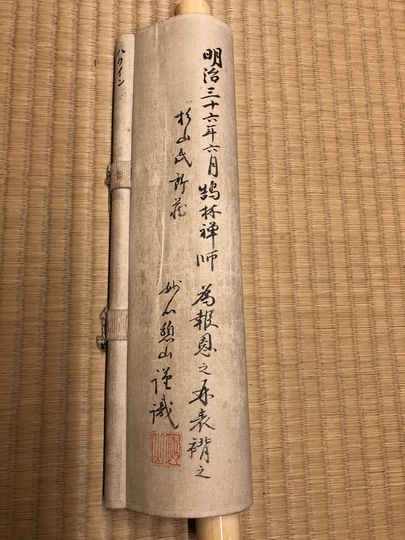 明治三十六年六月鵠林禅師 為報恩之再表褙之
杉山氏所蔵
妙心 山謹識
ハクイン